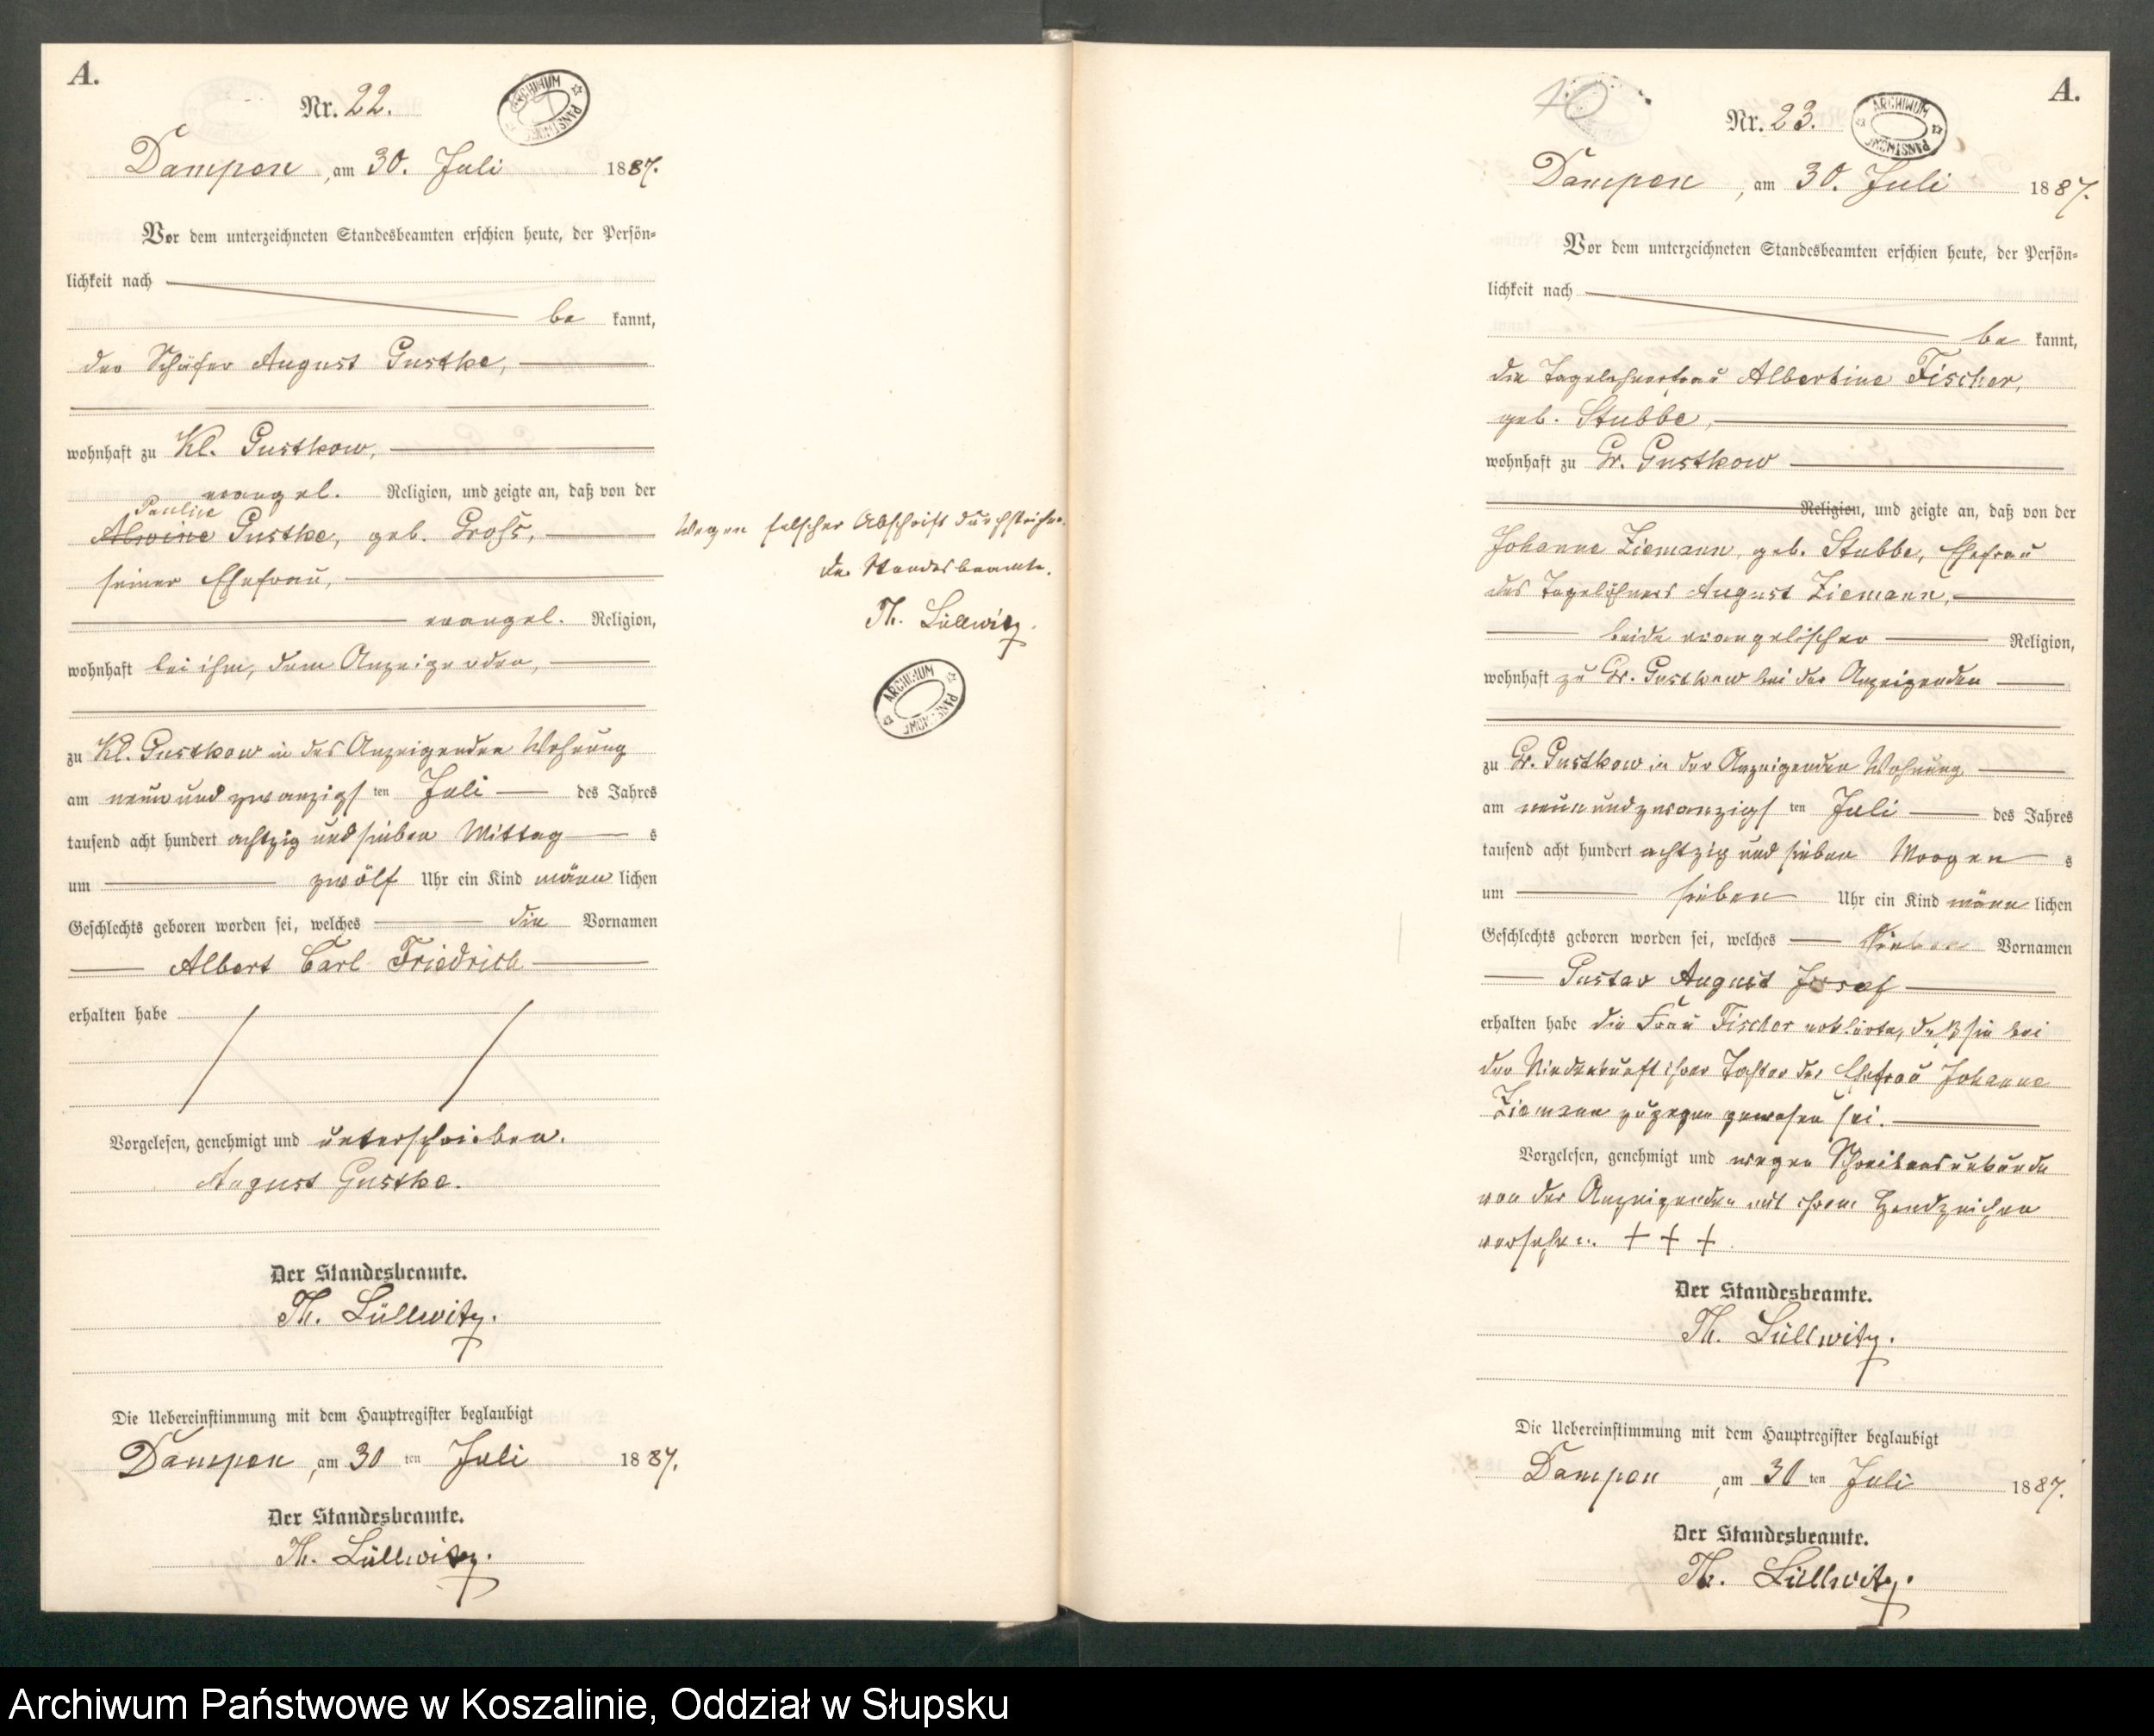 A.
Nr. 22.
ARCHIWUM PAŃSTWOWE
Dampen, am 30. Juli 1887.
Vor dem unterzeichneten Standesbeamten erschien heute, der Persön-
lichkeit nach
be kannt,
der Schäfer August Gustke,
wohnhaft zu Kl. Gustkow,
evangel. Religion, und zeigte an, daß von der
Pauline
Alwine Gustke, geb. Groß,
seiner Ehefrau,
evangel. Religion,
wohnhaft bei ihm, dem Anzeigenden,
zu Kl. Gustkow in des Anzeigenden Wohnung
am neunundzwanzigs ten Juli des Jahres
tausend acht hundert achtzig und sieben Mittag s
um zwölf Uhr ein Kind männ lichen
Geschlechts geboren worden sei, welches die Vornamen
Albert Carl Friedrich
erhalten habe
Vorgelesen, genehmigt und unterschrieben.
August Gustke.
Der Standesbeamte.
Th. Lüllwitz.
Die Uebereinstimmung mit dem Hauptregister beglaubigt
Dampen, am 30 ten Juli 1887.
Der Standesbeamte.
Th. Lüllwitz.
Wegen falscher Abschrift durchstrichen.
Der Standesbeamte.
Th. Lüllwitz.
ARCHIWUM PAŃSTWOWE
10
A.
Nr. 23.
ARCHIWUM PAŃSTWOWE
Dampen, am 30. Juli 1887.
Vor dem unterzeichneten Standesbeamten erschien heute, der Persön-
lichkeit nach
be kannt,
die Tagelöhnerfrau Albertine Fischer,
geb. Stubbe,
wohnhaft zu Gr. Gustkow
Religion, und zeigte an, daß von der
Johanne Ziemann, geb. Stubbe, Ehefrau
des Tagelöhners August Ziemann,
beide evangelischer Religion,
wohnhaft zu Gr. Gustkow bei der Anzeigenden
zu Gr. Gustkow in der Anzeigenden Wohnung
am neunundzwanzigs ten Juli des Jahres
tausend acht hundert achtzig und sieben Morgen s
um sieben Uhr ein Kind männ lichen
Geschlechts geboren worden sei, welches Vornamen
Gustav August Josef
erhalten habe die Frau Fischer erklärte, daß sie bei
der Niederkunft ihrer Tochter der Ehefrau Johanne
Ziemann zugegen gewesen sei.
Vorgelesen, genehmigt und wegen Schreibensunkunde
von der Anzeigenden mit ihrem Handzeichen
versehen. + + +
Der Standesbeamte.
Th. Lüllwitz.
Die Uebereinstimmung mit dem Hauptregister beglaubigt
Dampen, am 30 ten Juli 1887.
Der Standesbeamte.
Th. Lüllwitz.
Archiwum Państwowe w Koszalinie, Oddział w Słupsku